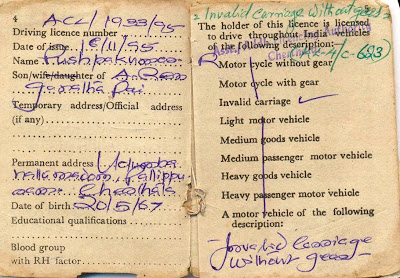 4
ACL/1933/95
Driving licence number
Date of issue 18/11/95
Name Pushpakumar
Son/wife/daughter of
Temporary address/Official address
(if any)
Permanent address
Cherthala
Date of birth 20/5/67
Educational qualifications
Blood group
with RH factor
Invalid Carriage Without gear
The holder of this licence is licensed
to drive throughout India vehicles
of the following description:
Motor cycle without gear
Motor cycle with gear
Invalid carriage
Light motor vehicle
Medium goods vehicle
Medium passenger motor vehicle
Heavy goods vehicle
Heavy passenger motor vehicle
A motor vehicle of the following
description:
Invalid Carriage
without gear